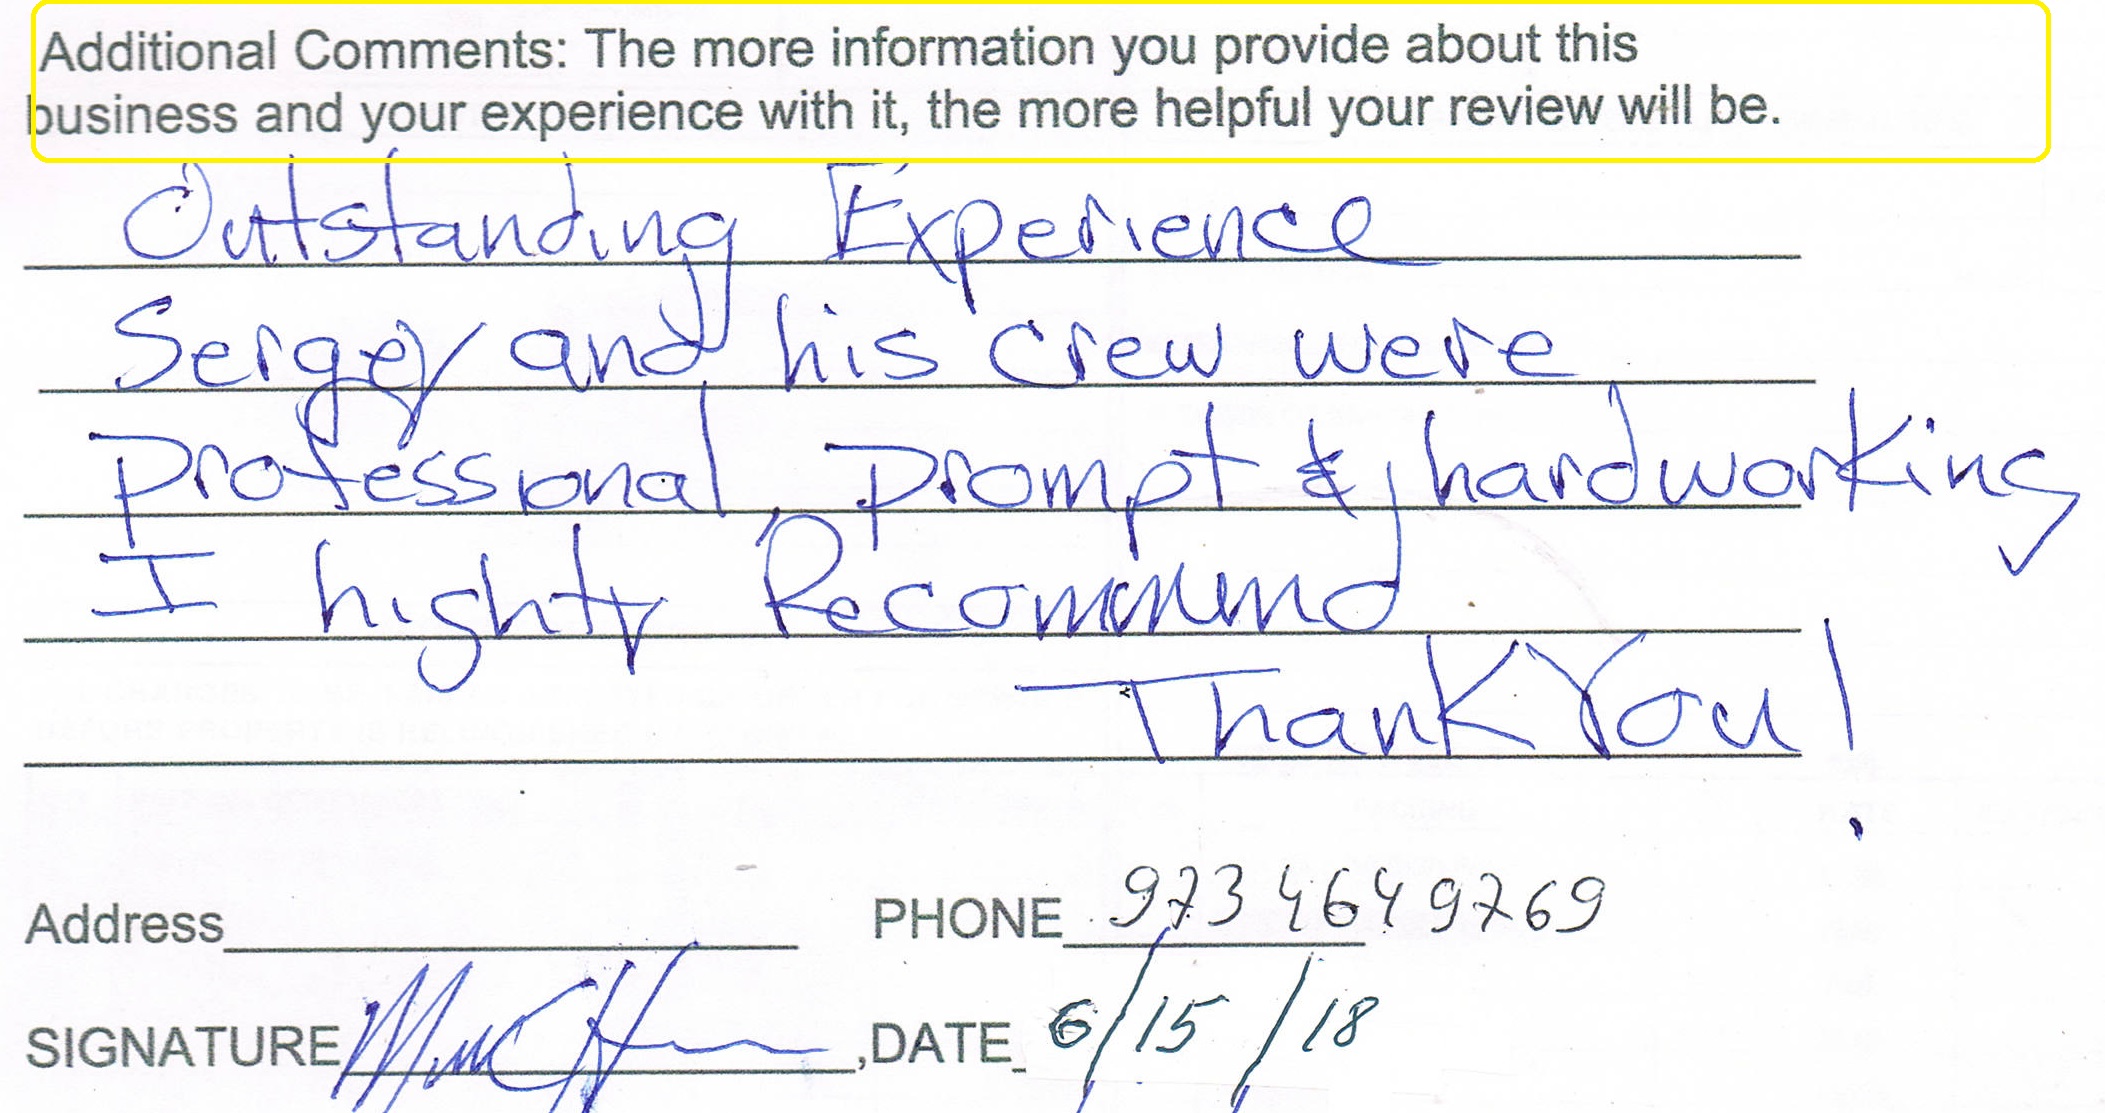 Additional Comments: The more information you provide about this
business and your experience with it, the more helpful your review will be.
Outstanding Experience
Sergey and his crew were
professional prompt & hardworking
I highty Recommend
Thank You!
Address PHONE 973 464 9769
SIGNATURE ,DATE 6/15/18